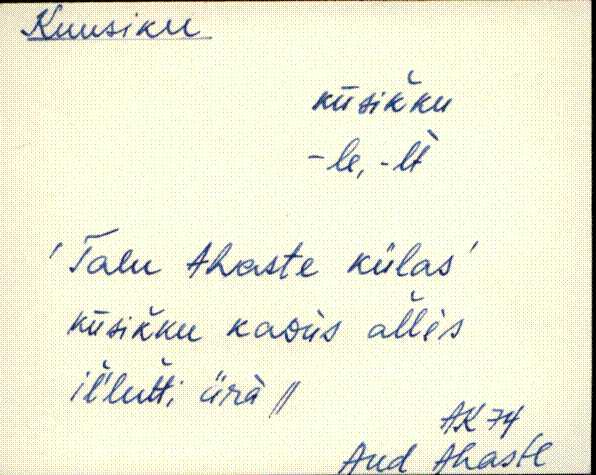 Kuusiku
kūsik̆ku
-le, -lt̀
'Talu Ahaste külas'
kūsik̆ku kaoūs
ärà //
AK 74
Aud Ahaste